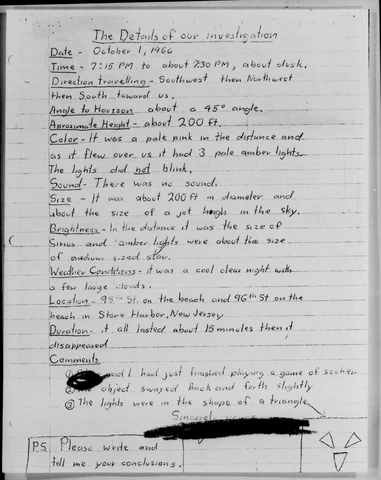 The Details of our investigation
Date - October 1, 1966
Time - 7:15 PM to about 7:30 PM, about dusk.
Direction travelling - Southwest then Northwest
then South toward us.
Angle to Horizon about a 45° angle.
Aproximate Height - about 200 ft.
Color - It was a pale pink in the distance and
as it flew over us it had 3 pale amber lights.
The lights did not blink.
Sound - There was no sound.
Size - It was about 200 ft in diameter and
about the size of a jet heigh in the sky.
Brightness - In the distance it was the size of
Sirius and amber lights were about the size
of medium sized star.
Weather Conditions - it was a cool clear night with
a few large clouds.
Location - 98th St. on the beach and 96th St on the
beach in Stone Harbor, New Jersey
Duration - it all lasted about 15 minutes then it
disappeared
Comments
① and I had just finished playing a game of
② The object swayed back and forth slightly
③ The lights were in the shape of a triangle
P.S. Please write and
tell me your conclusions.